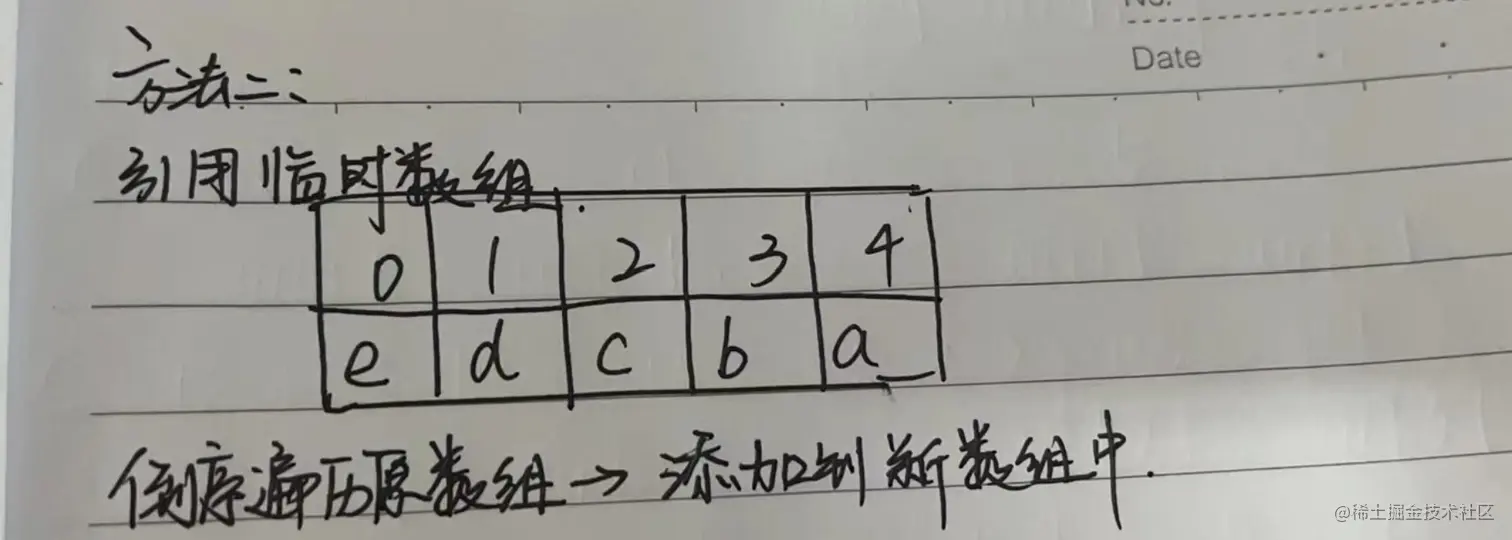 Date
方法二:
引用临时数组
0 1 2 3 4
e d c b a
倒序遍历原数组→添加到新数组中.
@稀土掘金技术社区